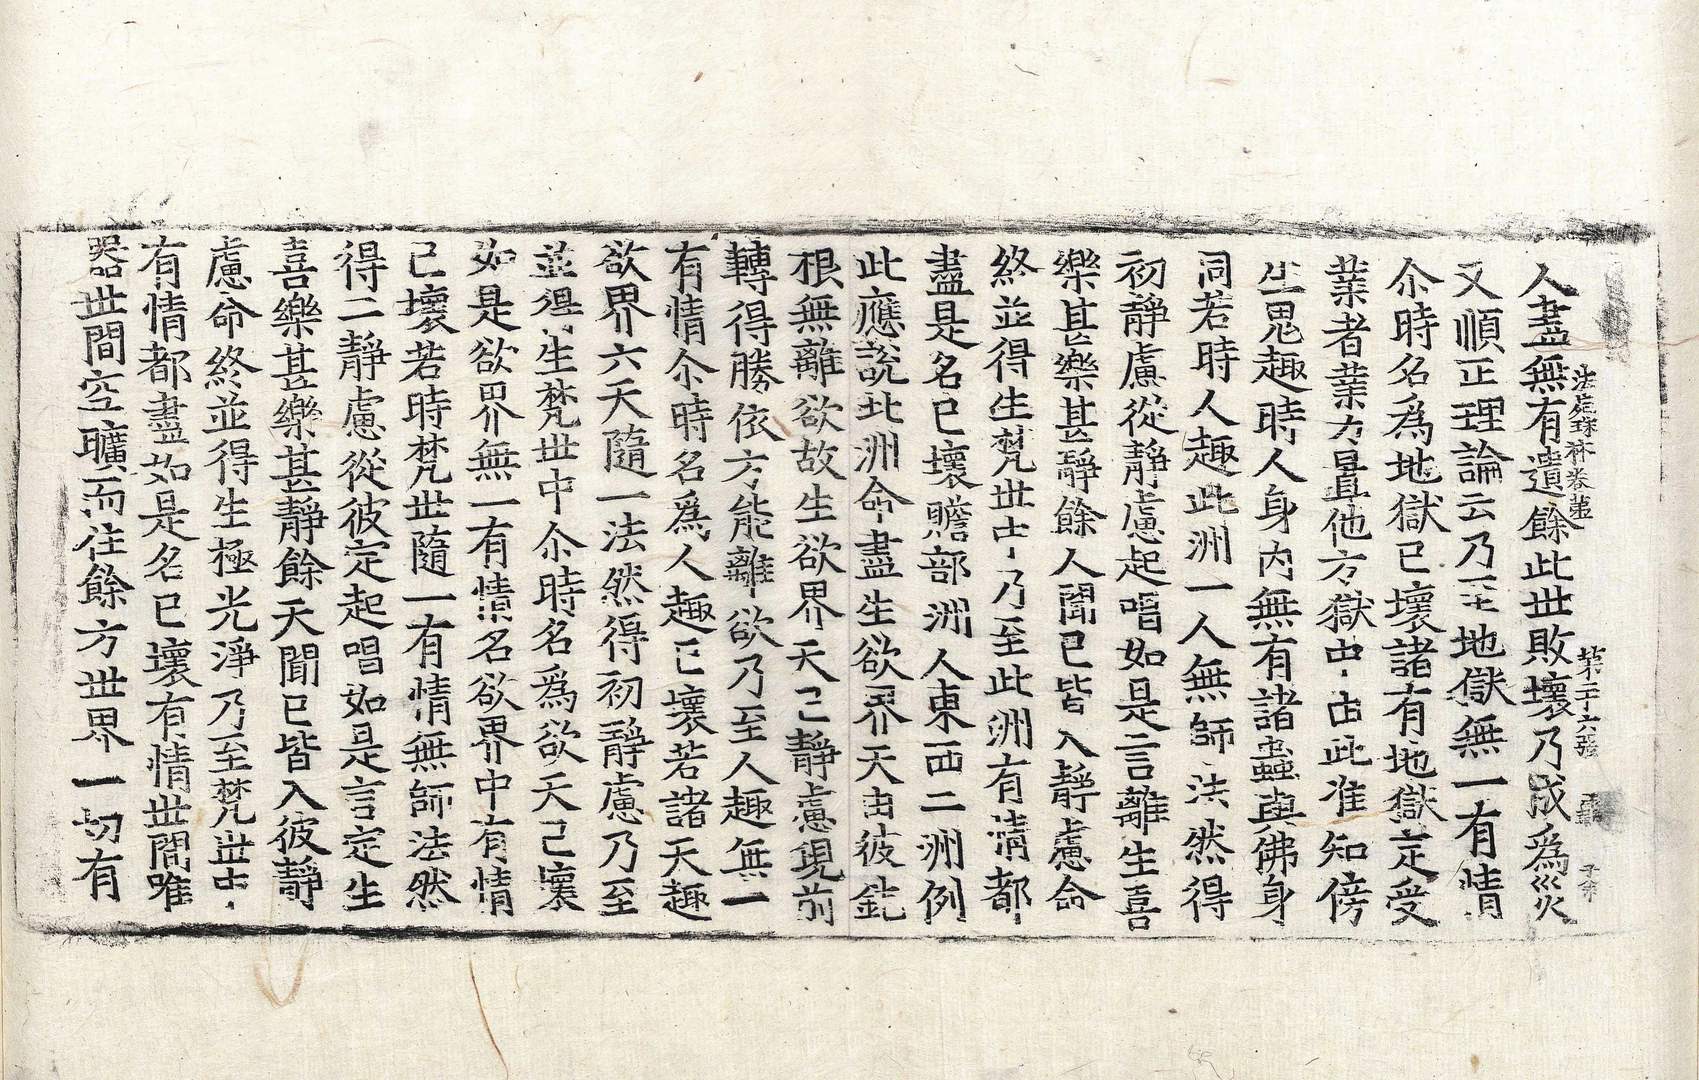 人盡無有遺餘此世敗壞乃成為災
法苑珠林卷苐一 第二十六張
又順正理論云乃至地獄無一有情
尒時名為地獄已壞諸有地獄定受
業者業力置他方獄中由此准知傍
生鬼趣時人身內無有諸蟲與佛身
同若時人趣此洲一人無師法然得
初靜慮從靜慮起唱如是言離生喜
樂甚樂甚靜餘人聞已皆入靜慮命
終並得生梵世中乃至此洲有情都
盡是名已壞贍部洲人東西二洲例
此應說北洲命盡生欲界天由彼鈍
根無離欲故生欲界天已靜慮現前
轉得勝依方能離欲乃至人趣無一
有情尒時名爲人趣已壞若諸天趣
欲界六天隨一法然得初靜慮乃至
並得生梵世中尒時名爲欲天已壞
如是欲界無一有情名欲界中有情
已壞若時梵世隨一有情無師法然
得二靜慮從彼定起唱如是言定生
喜樂甚樂甚靜餘天聞已皆入彼靜
慮命終並得生極光淨乃至梵世中
有情都盡如是名已壞有情世間唯
器世間空曠而住餘方世界一切有